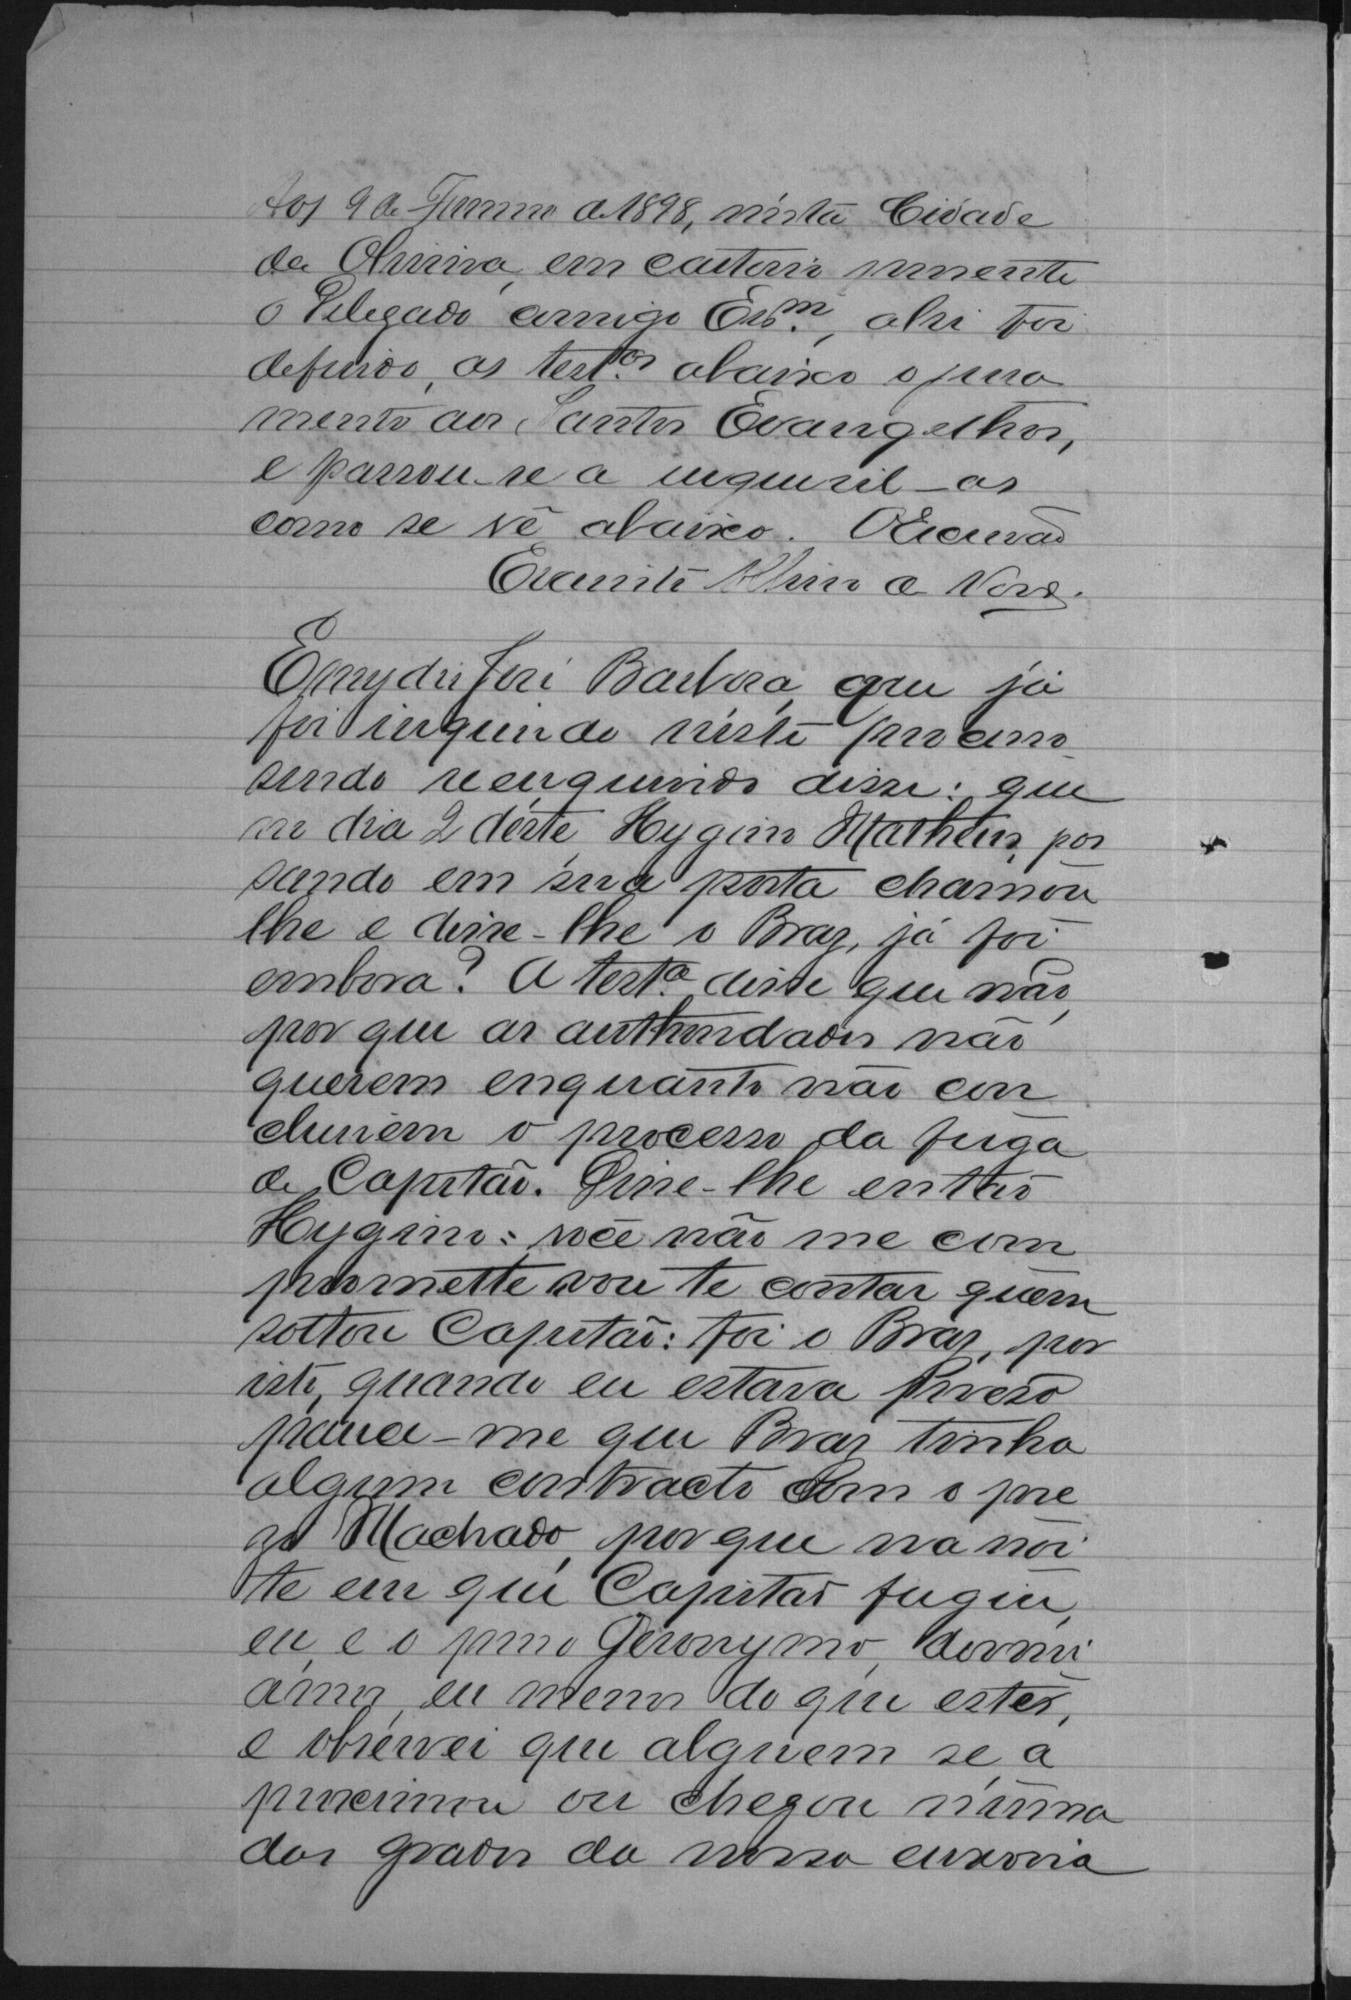 Aos 9 de Janeiro de 1898, nésta Cidade
de Oliveira, em cartorio presente
o Delegado comigo Escm., ahi foi
defirido, as testas abaixo o jura
mento aos Santos Evangelhos,
e passou-se a inquiril-as
como se vê abaixo. O Escrivão
Evaristo
Emydio José Barbosa, que já
foi inquirido néste processo
sendo reenquirido disse: que
no dia 2 déste, Hygino Matheus, pas
sando em sua porta chamou
lhe e disse-lhe o Braz, já foi
embora? A testa. disse que não,
por que as authoridades não
querem enquanto não con
cluirem o processo da fuga
de Capitão. Disse-lhe então
Hygino: você não me com
promette vou te contar quem
soltou Capitão: foi o Braz, por
isto, quando eu estava prezo
parece-me que Braz tinha
algum contracto com o pre
zo Machado, por que na noi
te em que Capitão fugiu,
eu, e o preso Jeronymo, dormi
amos, eu menos do que estes,
e observei que alguem se a
proximou ou chegou n'uma
das grades da nossa enxovia